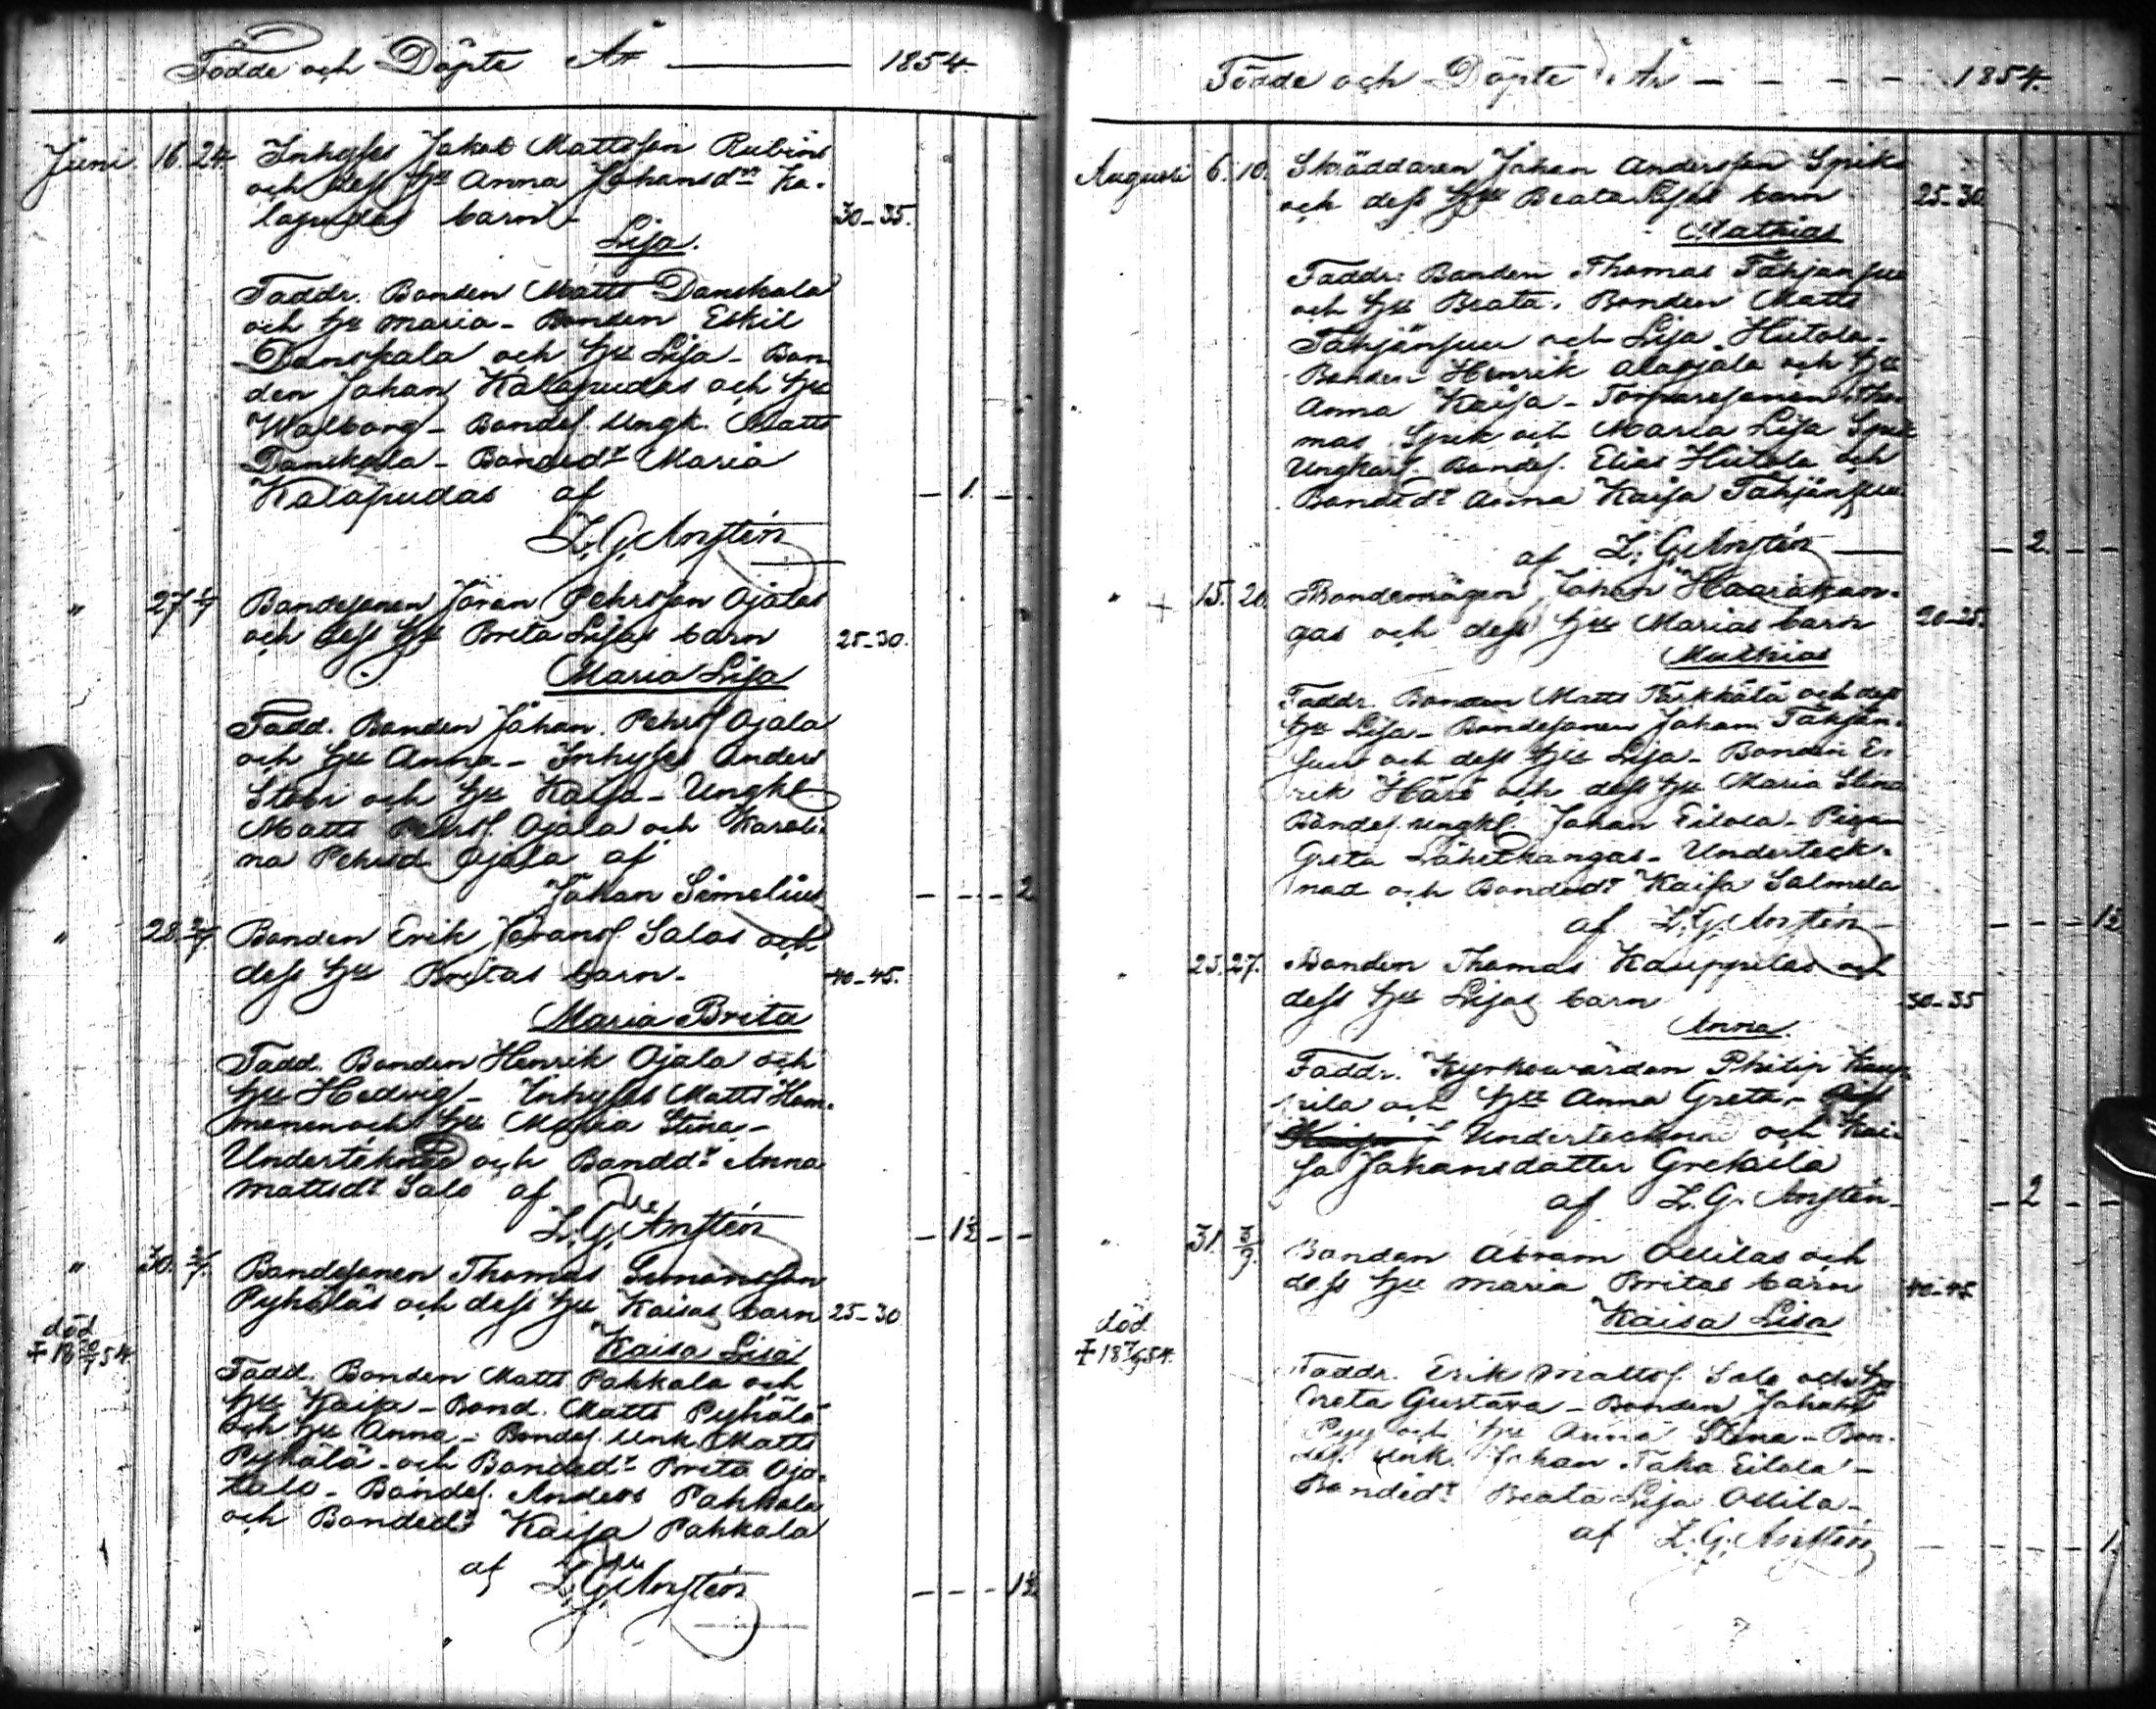 Födde och Döpte År 1854.
Juni. 16. 24. Inhyses Jakob Mattsson Rubins
och dess Hu Anna Johansdr Ka-
lapudas barn 30-35.
Lisa.
Faddr. Bonden Matts Danskala
och Hu Maria - Bonden Eskil
Danskala och Hu Lisa - Bon-
den Johan Kalapudas och Hu
Walborg - Bondes. Ungk. Matts
Danskala - Bondedr Maria
Kalapudas af - 1. -
L. G. Anstén
" 27 2/7 Bondesonen Jöran Pehrsson Ojalas
och dess Hu Brita Lisas barn 25-30.
Maria Lisa
Fadd. Bonden Johan Pehrs. Ojala
och Hu Anna - Inhyses Anders
och Hu Kaisa - Ungk
Matts Pehrs. Ojala och Karoli-
na Pehrsd. Ojala af
Johan Simelius - - - 2
" 28. 2/7 Bonden Erik Jörans. Salos och
dess Hu Britas barn. 40-45.
Maria Brita
Fadd. Bonden Henrik Ojala och
Hu Hedvig - Inhyses Matts Ham-
menen och Hu Maria Stina -
Undertecknad och Bondedr Anna
Mattsdr Salo af
L. G. Anstén - 1½ - -
" 30. 2/7. Bondesonen Thomas Simonsson
Pyhäläs och dess Hu Kaisas barn 25-30
död
Kaisa Lisa
Fadd. Bonden Matts Pahkala och
Hu Kaisa - Bond. Matts Pyhälä
och Hu Anna - Bondes. Unk. Matts
Pyhälä - och Bondedr Brita Oja-
talo - Bondes. Anders Pahkala
och Bondedr Kaisa Pahkala
af L. G. Anstén - - - 1½
Födde och Döpte År - - - - 1854.
Augusti 6. 10. Skräddaren Johan Andersson Spiks
och dess Hu Beata Lisas barn 25-30
Mathias
Faddr. Bonden Thomas Tähjänsuu
och Hu Beata. Bonden Matts
Tähjänsuu och Lisa Hiitola -
Bonden Henrik Alaojala och Hu
Anna Kaisa - Torparesonen Tho-
mas Spik och Maria Lisa Spik
Ungkarl. Bondes. Elias Hiitola och
Bondedr Anna Kaisa Tähjänsuu
af L. G. Anstén - 2. - -
" + 15. 20. Bondemågen Johan Haarakan-
gas och dess Hu Marias barn 20-25.
Mathias
Faddr. Bonden Matts Tärkkälä och dess
Hu Lisa - Bondesonen Johan Tähjän-
suu och dess Hu Lisa - Bonden E-
rik Härö och dess Hu Maria Stina
Bondes. ungkl. Johan Eilola - Pigan
Greta Lähetkangas - Underteck-
nad och Bondedr Kaisa Salmela
af L. G. Anstén - - - 1½
" 25. 27. Bonden Thomas Kauppilas och
dess Hu Lisas barn 30-35
Anna.
Faddr. Kyrkowärden Philip Kaup-
pila och Hu Anna Greta -
Undertecknad och Kai-
sa Johansdatter Grekula
af L. G. Anstén - - 2 - -
" 31. 3/9. Bonden Abram Ollilas och
dess Hu Maria Britas barn 40-45
Kaisa Lisa
död
+ 18 7/9 54.
Faddr. Erik Matts. Salo och Hu
Greta Gustava - Bonden Johan
Pyy och Hu Anna Stina - Bon-
des. Unk. Johan Taka Eilola -
Bondedr Beata Lisa Ollila -
af L. G. Anstén - - - 1.